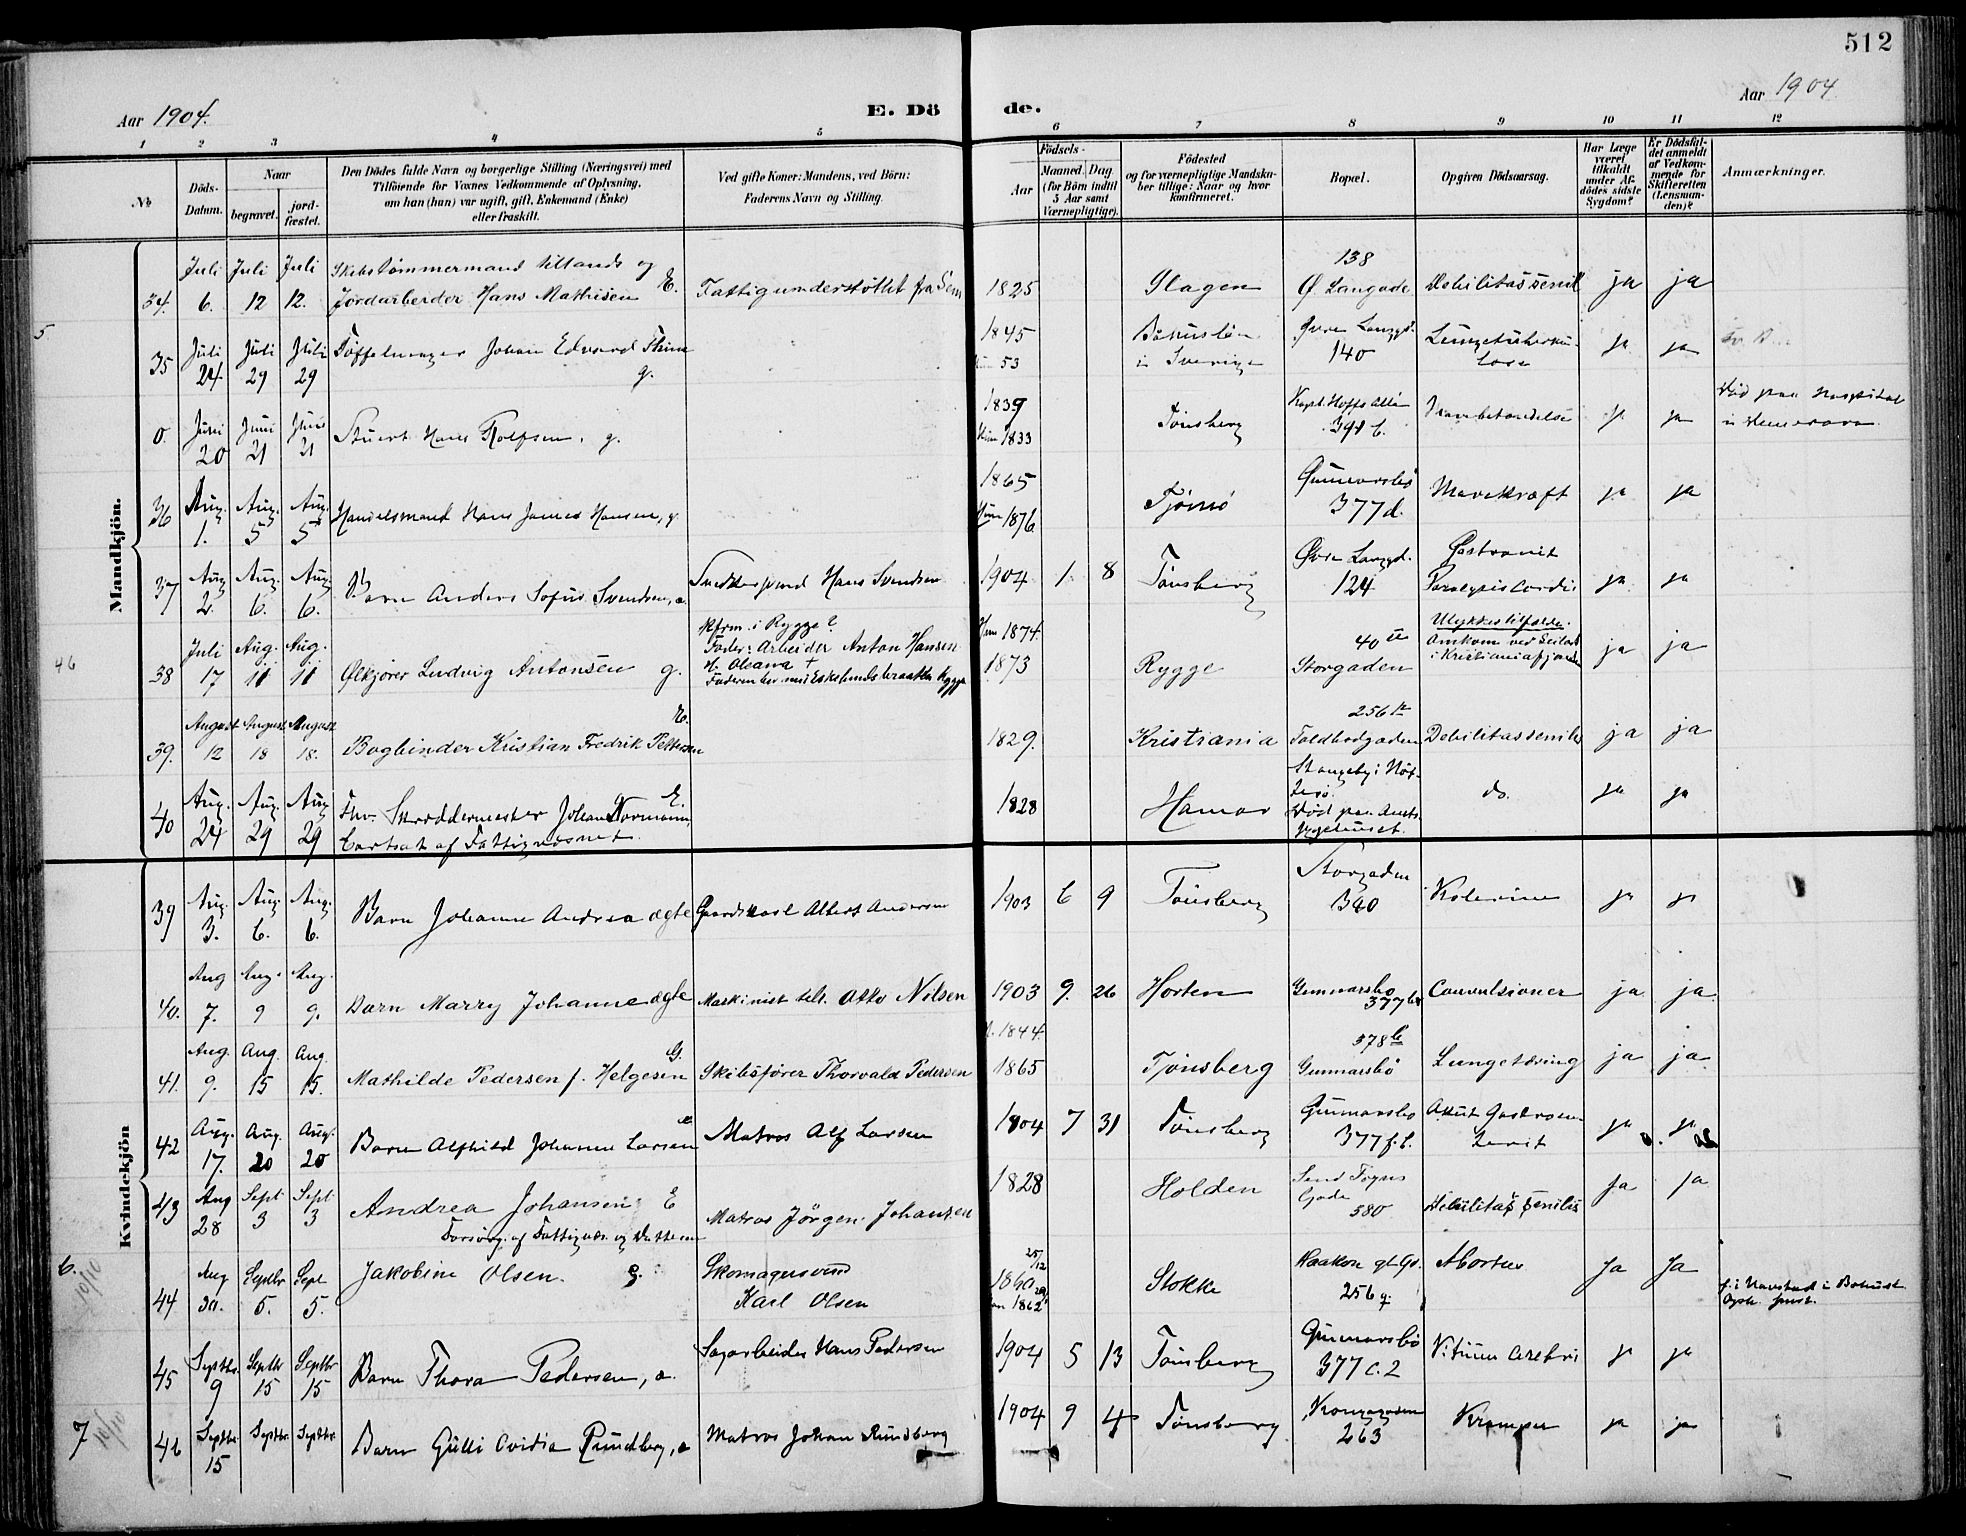 512
Aar 1904.
E. Dö de.
Aar 1904
1 2 3 4 5 6 7 8 9 10 11 12
No
Döds-Datum.
Naar
begravet.
jord-fæstet.
Den Dödes fulde Navn og borgerlige Stilling (Næringsvei) med
Tilföiende for Voxnes Vedkommende af Oplysning,
om han (hun) var ugift, gift, Enkemand (Enke)
eller fraskilt.
Ved gifte Koner: Mandens, ved Börn:
Faderens Navn og Stilling.
Födsels-
Aar
Maaned. Dag
(for Börn indtil
5 Aar samt
Værnepligtige).
Födested
og for værnepligtige Mandska-
ber tillige: Naar og hvor
konfirmeret.
Bopæl.
Opgiven Dödsaarsag.
Har Læge
været
tilkaldt
under Af-
dödes sidste
Sygdom?
Er Dödsfal-
det anmeldt
af Vedkom-
mende for
Skifteretten
(Lensman-
den)?
Anmærkninger.
Mandkjön.
34. Juli 6. Juli 12 Juli 12. Skibstømmermand tillands og
Jordarbeider Hans Mathisen E. Fattigunderstøttet fra Sem 1825 Slagen 138
Ø. Langgade Debilitas senil ja ja
5
35 Juli 24. Juli 29 Juli 29 Tøffelmager Johan Edvard g. 1845
53 Båhuslän
i Sverige Øvre Langgd.
140 Lungetuberku-
lose ja ja
0. Juni 20 Juni 21 Juni 21 Stuert Hans Rolfsen, g. 1839
1833 Tönsberg Kapt. Hoffs Allé
391 b. ja ja Död paa Hospital
i
36 Aug. 1. Aug. 5 Aug. 5 Handelsmand Hans James Hansen, g 1865
1876 Tjömö Gunnarsbö
377 d. Mavekræft ja ja
37 Aug 2. Aug. 6. Aug 6. Barn Anders Sofus Svendsen, æ. Snedkersvend Hans Svendsen 1904 1. 8 Tönsberg Øvre Langgd.
124 Gastroenit
Paralysis Cordis ja ja
46
38 Juli 17 Aug. 11 Aug. 11 Ølkjører Ludvig Antonsen g. Kfrm. i Rygge?
Fader: Arbeider Anton Hansen
H. Olsana +
1874.
1873 Rygge 40
Storgaden Ulykkestilfælde.
Omkom ved Seilads
i Kristianiafjorden ja ja
39. August 12 August 18 August 18. Bogbinder Kristian Fredrik Pettersen E. 1829. Kristiania 256
Toldbodgaden Debilitas senilis ja ja
40 Aug. 24 Aug. 29 Aug 29 Fhv. Skræddermester Johan Normann, E.
Bortsat af Fattigvæsnet. 1828 Hamar Stangeby i Nöt-
terö.
Död paa Amts-
sygehuset. do. ja ja
Kvindekjön
39 Aug. 3. Aug 6. Aug. 6. Barn Johanne Andrea ægte Gaardskarl Albert Andersen 1903 6 9 Tönsberg Storgaden
340 Kolerine ja ja
40. Aug 7. Aug. 9 Aug. 9. Barn Marry Johanne ægte Maskinist tils. Otto Nilsen 1903 9. 26 Horten Gunnarsbo
377 Convulsioner ja ja
41. Aug. 9. Aug. 15 Aug. 15. Mathilde Pedersen f. Helgesen G. Skibsfører Thorvald Pedersen 1844.
1865 Tjönsberg 378 b
Gunnarsbö Lungetæring ja ja.
42 Aug. 17. Aug. 20 Aug. 20 Barn Alfhild Johanne Larsen æ Matros Alf Larsen 1904 7 31 Tönsberg Gunnarsbo
377 f. b. Akut Gastroen-
terit ja ja
43 Aug 28 Sept 3 Sept 3 Andrea Johansen E
Forsörg. af Fattigvæs. og Datteren Matros Jörgen Johansen 1828 Holden Svend Foyns
Gade
580 Debilitas senilis ja ja
6. 10/10
44 Aug 30. Septbr 5. Sept 5. Jakobine Olsen. g. Skomagersvend
Karl Olsen 25/12
1860
1862 Stokke Haakon gl. Gd.
256 g. Ja Ja
45 Septbr. 9 Septbr 15 Septbr 15 Barn Thora Pedersen, æ. Sagarbeider Hans Pedersen 1904 5 13 Tönsberg Gunnarsbö
377 C. 2 Vitium Cerebri ja ja
7 10/10
46 Septbr. 15 Septbr. Septbr. Barn Gulli Ovidia Rundberg, æ Matros Johan Rundberg 1904 9 4 Tønsberg Kongsgaden
263 Kramper ja ja